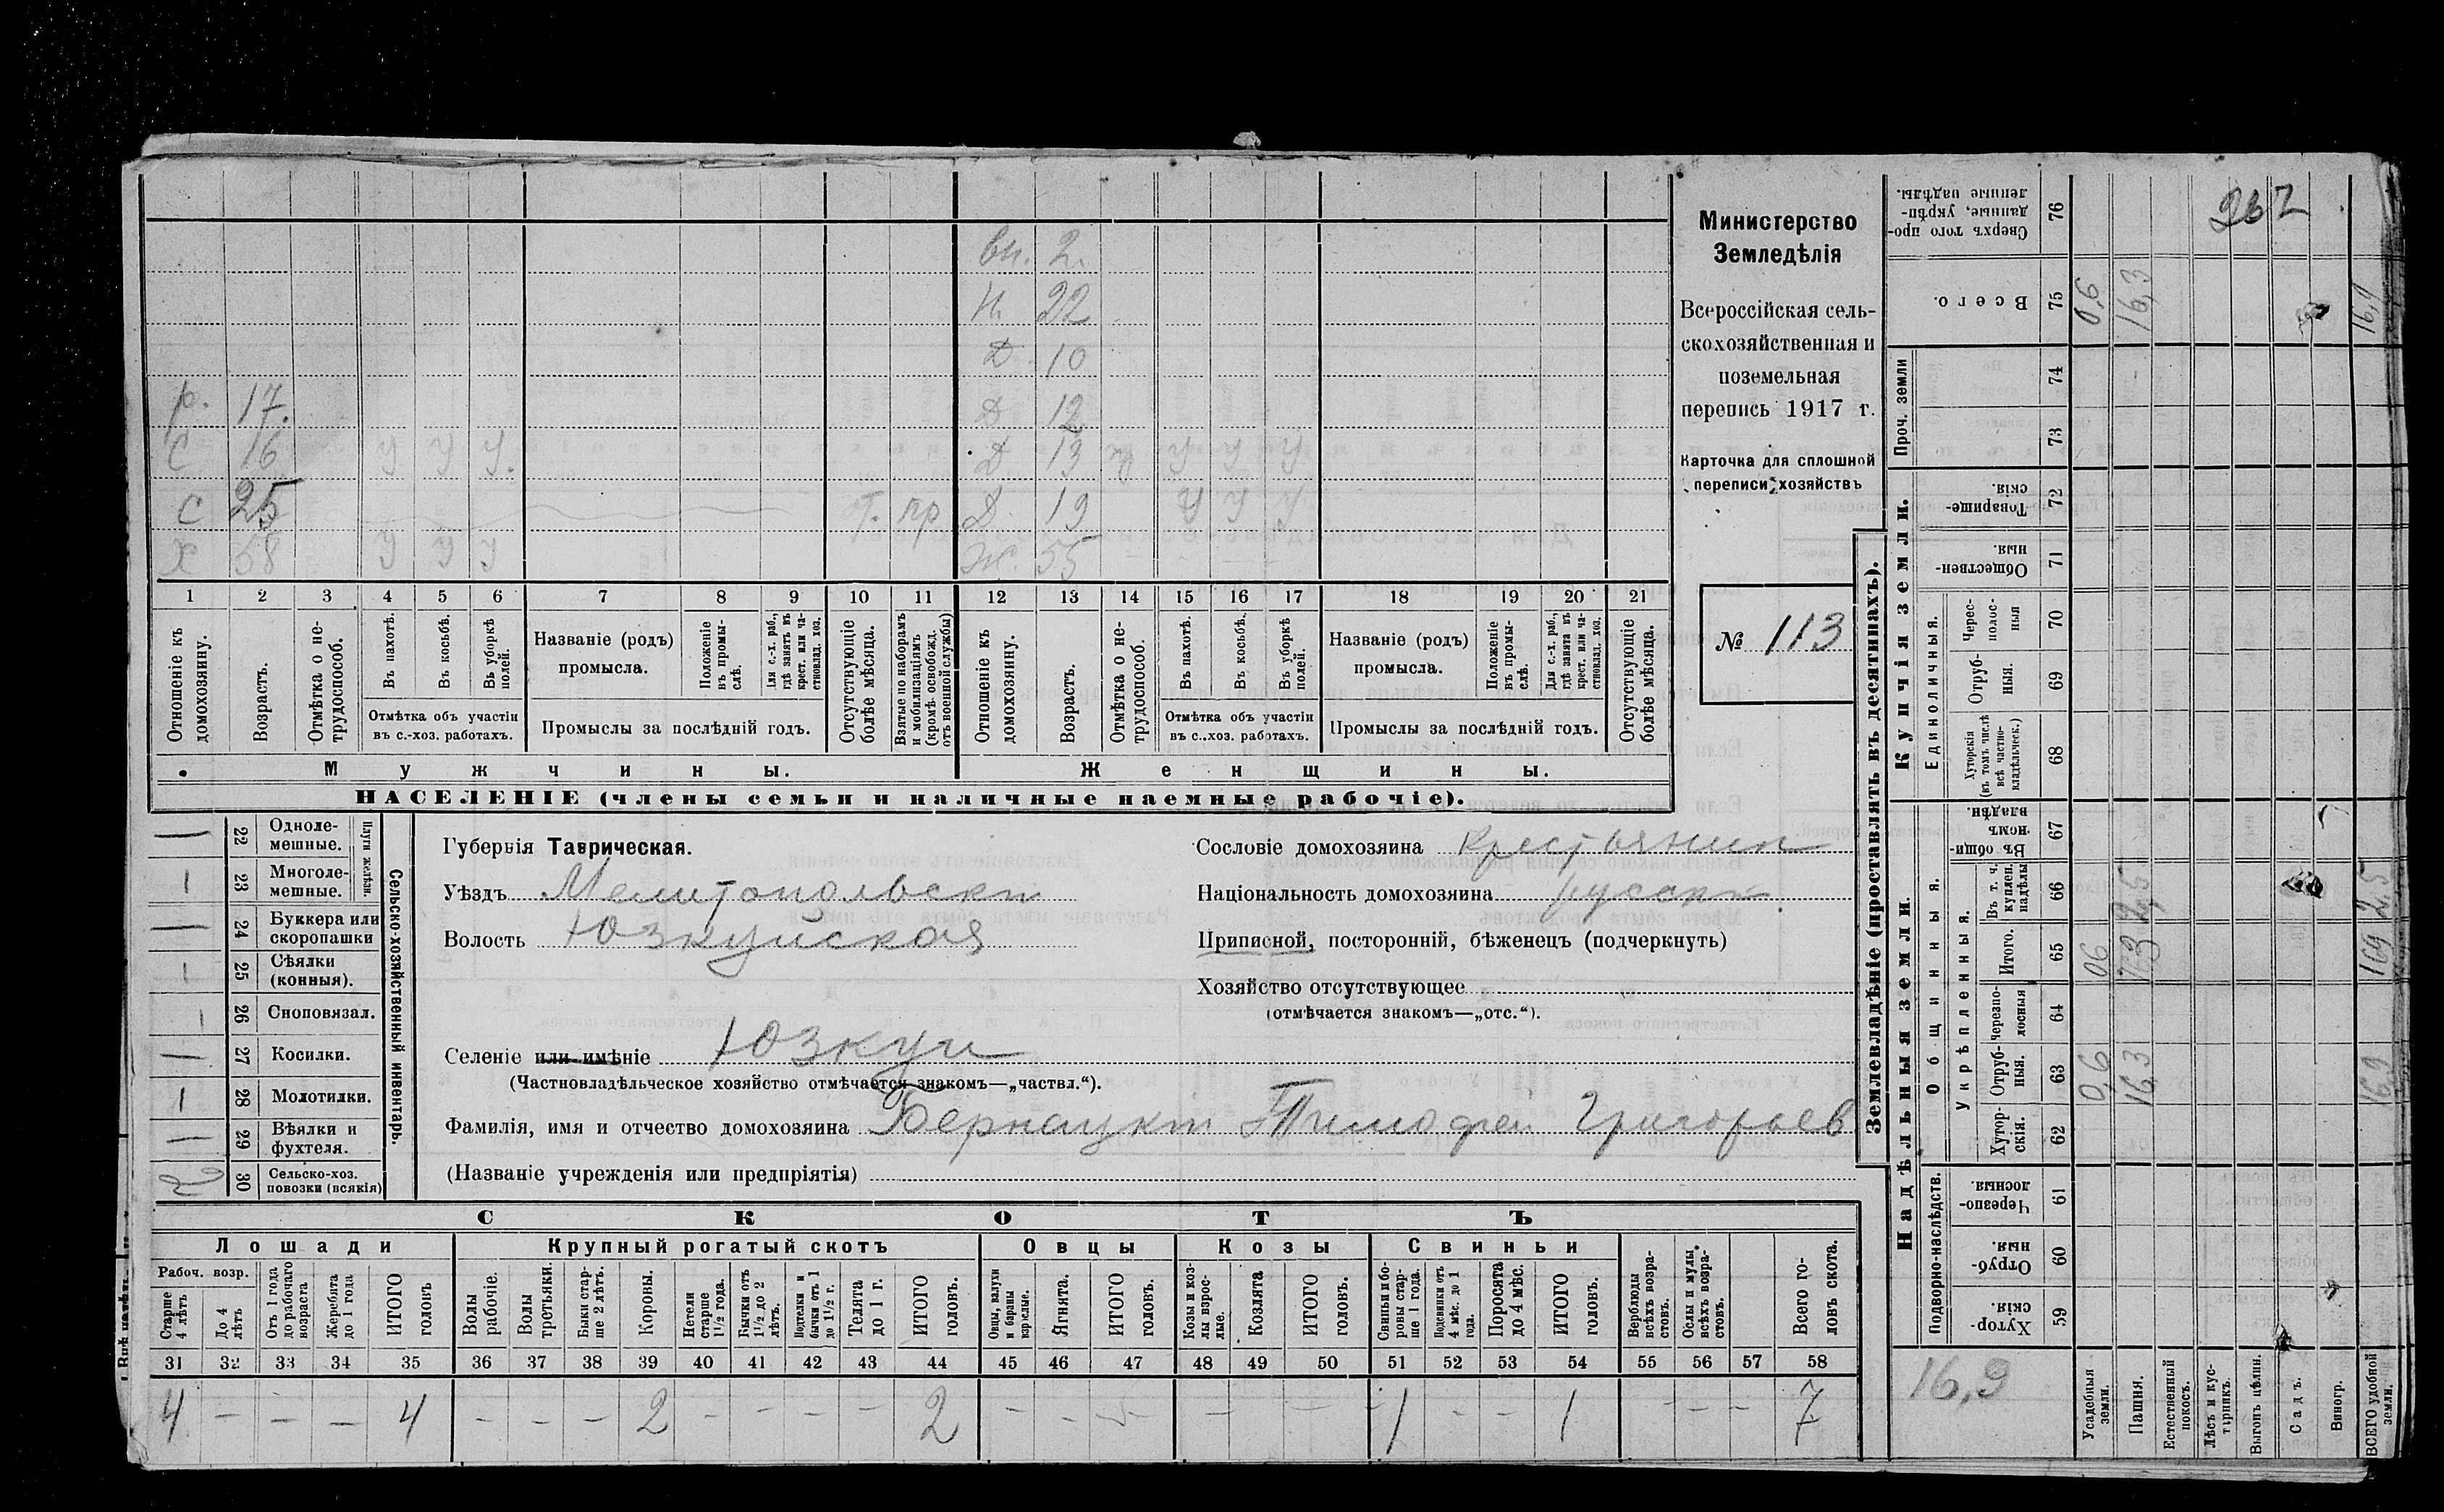 вн. 2.
н. 22
Д 10
р. 17. Д 12
С 16 У У У. Д 13 У У У
С 25 пр Д. 19 У У У
Х 58 У У У Ж. 55
1 2 3 4 5 6 7 8 9 10 11 12 13 14 15 16 17 18 19 20 21
Отношеніе къ домохозяину.
Возрастъ.
Отмѣтка о нетрудоспособ.
Въ пахотѣ.
Въ косьбѣ.
Въ уборкѣ полей.
Отмѣтка объ участіи въ с.-хоз. работахъ.
Названіе (родъ) промысла.
Положеніе въ промыслѣ.
Для с.-х. раб., гдѣ занятъ въ крест. или частновлад. хоз.
Промыслы за послѣдній годъ.
Отсутствующіе болѣе мѣсяца.
Взятые по наборамъ и мобилизаціямъ (кромѣ освобожд. отъ военной службы)
Отношеніе къ домохозяину.
Возрастъ.
Отмѣтка о нетрудоспособ.
Въ пахотѣ.
Въ косьбѣ.
Въ уборкѣ полей.
Отмѣтка объ участіи въ с..хоз. работахъ.
Названіе (родъ) промысла.
Положеніе въ промыслѣ.
Для с.-х. раб., гдѣ занята въ крест. или частновлад. хоз.
Промыслы за послѣдній годъ.
Отсутствующіе болѣе мѣсяца.
Мужчины. Женщины.
НАСЕЛЕНІЕ (члены семьи и наличные наемные рабочіе).
Министерство
Земледѣлія
Всероссійская сель-
скохозяйственная и
поземельная
перепись 1917 г.
Карточка для сплошной
переписи хозяйствъ
№ 113
Сельско-хозяйственный инвентарь.
Плуги желѣзн.
— 22 Одноле-мешные.
1 23 Многоле-мешные.
— 24 Буккера или скоропашки
1 25 Сѣялки (конныя).
1 26 Сноповязал.
— 27 Косилки.
1 28 Молотилки.
— 29 Вѣялки и фухтеля.
2 30 Сельско-хоз. повозки (всякія)
Губернія Таврическая.
Уѣздъ Мелитопольскій
Волость Юзкуйская
Селеніе или имѣніе Юзкуи
(Частновладѣльческое хозяйство отмѣчается знакомъ—„частвл.“).
Фамилія, имя и отчество домохозяина Бернацкій Тимофей Григорьев
(Названіе учрежденія или предпріятія)
Сословіе домохозяина крестьянин
Національность домохозяина русскій.
Приписной, посторонній, бѣженецъ (подчеркнуть)
Хозяйство отсутствующее
(отмѣчается знакомъ—„отс.“).
СКОТЪ
Лошади Крупный рогатый скотъ Овцы Козы Свиньи
Рабоч. возр.
Старше 4 лѣтъ
До 4 лѣтъ
Отъ 1 года до рабочаго возраста
Жеребята до 1 года
ИТОГО головъ
Волы рабочіе.
Волы тротьяки.
Быки старше 2 лѣтъ.
Коровы.
Нетели старше 1½ года.
Бычки отъ 1½ до 2 лѣтъ.
Подтелки и бычки отъ 1 до 1½ г.
Телята до 1 г.
ИТОГО головъ.
Овцы, валухи и бараны взрослые.
Ягнята.
ИТОГО головъ.
Козы и козлы взрослые.
Козлята
ИТОГО головъ.
Свиньи и боровы старше 1 года.
Подсвинки отъ 4 мѣс. до 1 года.
Поросята до 4 мѣс.
ИТОГО головъ.
Верблюды всѣхъ возрастовъ.
Ослы и мулы всѣхъ возрастовъ.
Всего головъ скота.
31 32 33 34 35 36 37 38 39 40 41 42 43 44 45 46 47 48 49 50 51 52 53 54 55 56 57 58
4 — — — 4 — — — 2 — — — — 2 — — — — — — 1 — — 1 — — — 7
Землевладѣніе (проставлять въ десятинахъ).
Купчія земли.
Надѣльныя земли.
Сверхъ того проданные, укрѣпленные надѣлы. 76
Всего. 75 0,6 16,3 16,9
Проч. земли 74 73
Товарищескія. 72
Общественныя. 71
Единоличныя.
Чересполосныя 70
Отрубныя. 69
Хуторскія (въ томъ числѣ всѣ частновладѣльческ.) 68
Общинныя.
Въ общинномъ владѣн. 67
Укрѣпленныя.
Въ т. ч. куплен. надѣлы 66 2,5
Итого. 65 06 169
Черезполосныя 64
Отрубныя. 63 0,6 16,3 16,9
Хуторскія. 62
Подворно-наслѣдств.
Черезполосныя. 61
Отрубныя. 60
Хуторскія. 59
16,9
Усадебныя земли.
Пашня.
Естественный покосъ.
Лѣсъ и кустарникъ.
Выгонъ цѣлин.
Садъ.
Виногр.
ВСЕГО удобной земли.